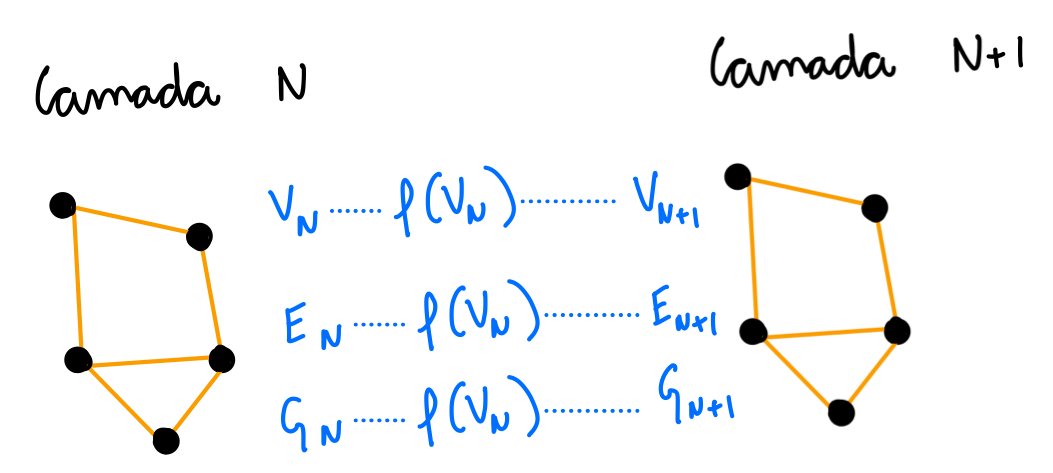 Camada N
Camada N+1
V_N ...... f(V_N) ............ V_{N+1}
E_N ...... f(V_N) ............ E_{N+1}
G_N ...... f(V_N) ............ G_{N+1}